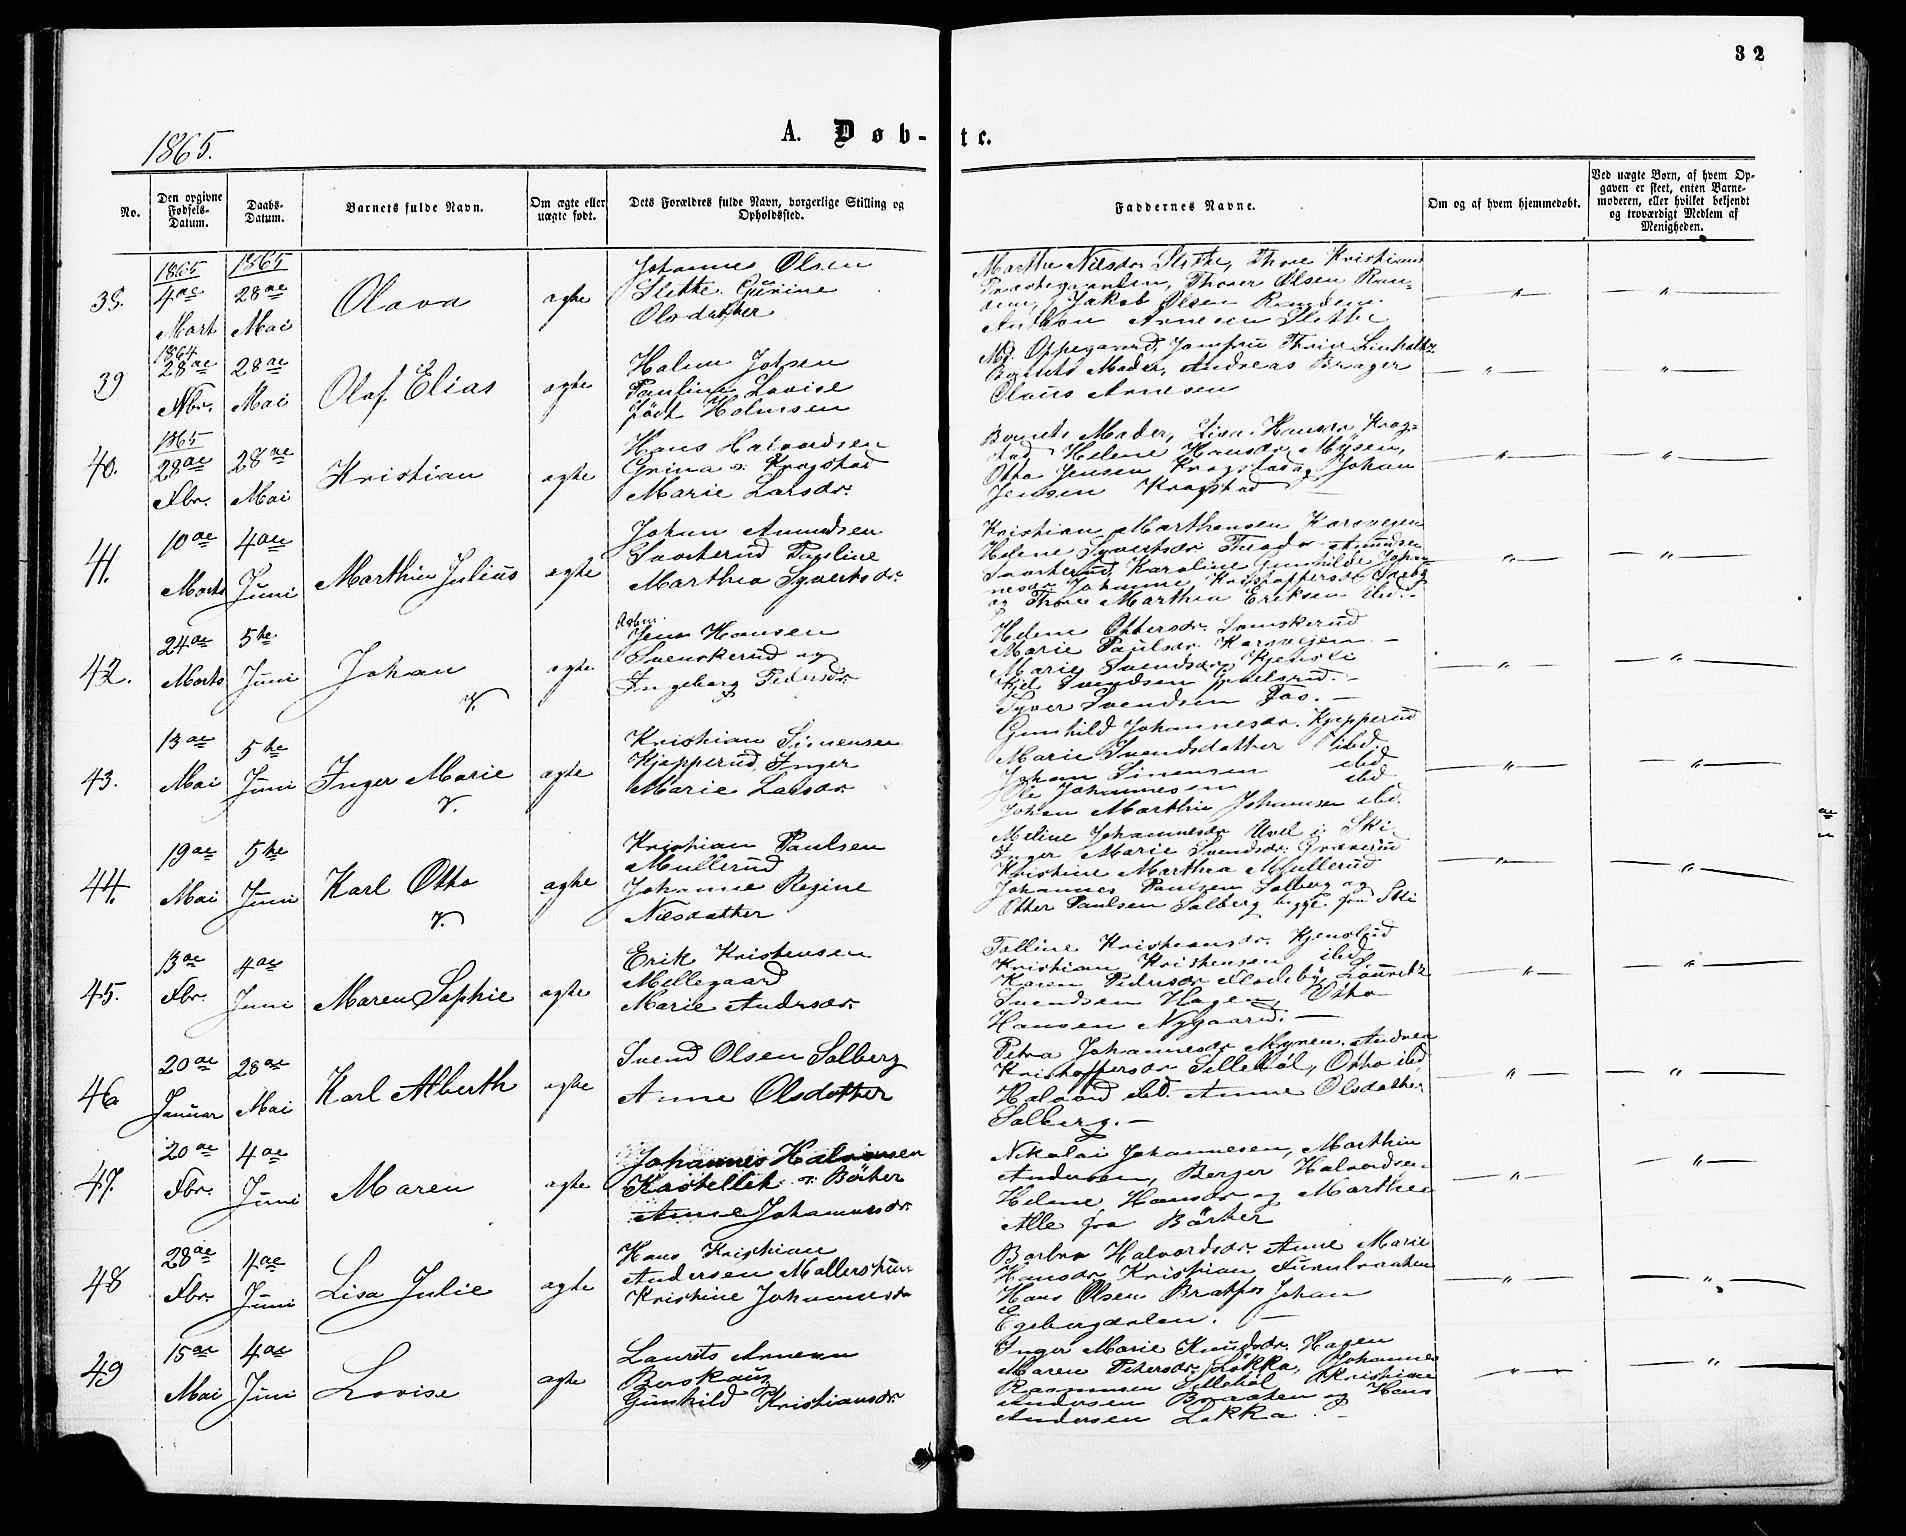 32
1865.
A. Døb-te.
No.
Den opgivne Fødsels-Datum.
Daabs-Datum.
Barnets fulde Navn.
Om ægte eller uægte født.
Dets Forældres fulde Navn, borgerlige Stilling og Opholdssted.
Faddernes Navne.
Om og af hvem hjemmedøbt.
Ved uægte Børn, af hvem Opgaven er skeet, enten Barnemoderen, eller hvilket bekjendt og troværdigt Medlem af Menigheden.
38.
1865
4de
Mart
1865
28de
Mai
Olava
ægte
Johannes Olsen
Slette. Gurine
Olsdatter
Marthe Nilsdr Slette, Thore Kristians
Præstegaarden, Thorer Olsen
Jakob Olsen
Anthon Arnesen Slette
— " —
— " —
39
1864
28de
Nbr.
28de
Mai
Olaf Elias
ægte
Halem Jotsen
Pauline Lovise
født Holmsen
Md. Oppegaard, Jomfru
Barnets Moder, Andreas Brager
Olaus Arnesen
— " —
— " —
40.
1865
28de
Fbr.
28de
Mai
Kristian
ægte
Hans Halvordsen
Grina v. Kragstad
Marie Larsdr.
Barnets Moder, Lisa Hansdr Krag-
stad Helene Hansdr. Mysen,
Otto Jensen Kragstad og Johan
Jensen Kragstad —
— " —
— " —
41.
10de
Marts
4de
Juni
Marthin Julius
ægte
Johan Amundsen
Pauline
Marthea Syvertsdr.
Kristian Marthensen Karsvegen
Helene Syvertsdr Theodor Amundsen
Karoline Gunhilde Johan-
nesdr Johanne Kristoffersdr
og Thore Marthin Eriksen ibid.
— " —
— " —
42.
24de
Marts
5te
Juni
Johan
V.
ægte
Jens Hansen
Svenskerud og
Ingeborg Pedersdr.
Helene Ottersdr. Svenskerud
Marie Paulsdr. Karsvejen —
Marie Svendsdr
Svendsen
Syver Svendsen Taas. —
— " —
— " —
43.
13de
Mai
5te
Juni
Inger Marie
V.
ægte
Kristian Simensen
Kjapperud, Inger
Marie Larsdr.
Gunhild Johannesdr. Kjapperud
Marie Svendsdatter ibid.
Johan Simensen ibid
Ole Johannesen ibid
Johan Marthin Johannsen ibid.
— " —
— " —
44.
19de
Mai
5te
Juni
Karl Otto
V.
ægte
Kristian Paulsen
Mullerud
Johanne Regine
Nilsdatter
Meline Johannesdr i Ski
Inger Marie Svendsdr. Græverud
Kristine Marthea Mullerud
Johannes Paulsen Solberg og
Otter Paulsen Solberg begge fra Ski
— " —
— " —
45.
13de
Fbr.
4de
Juni
Maren Sophie
ægte
Erik Kristensen
Mellegaard
Marie Andersdr.
Kristiansdr.
Kristian Kristensen ibid
Karen Pedersdr Flodeby, Lauretz
Svendsen Hagen, Otto
Hansen Nygaard. —
— " —
— " —
46
20de
Januar
28de
Mai
Karl Alberth
ægte
Svend Olsen Solberg
Anne Olsdatter
Petra Johannesdr Myren, Andrea
Kristoffersdr Sillebøl, Otto ibd,
Halvord ibd. Anne Olsdatter
Solberg. —
— " —
— " —
47.
20de
Fbr.
4de
Juni
Maren
ægte
Johannes Halvorsen
Kastellet v. Børter
Anne Johannesdr.
Nikolai Johannesen, Marthin
Andersen, Berger Halvordsen,
Helene Hansdr og Marthea
Alle fra Børter
— " —
— " —
48
28de
Fbr.
4de
Juni
Lisa Julie
ægte
Hans Kristian
Andersen
Kristine Johannesdr
Barbro Halvordsdr. Anne Marie
Hansdr Kristian Furubraaten
Hans Olsen Bratfos Johan
Egebergdalen. —
— " —
— " —
49
15de
Mai
4de
Juni
Lovise
ægte
Laurits Arnesen
Buskaug
Gunhild Kristiansdr.
Inger Marie Knudsdr. Hagen
Maren Petersdr. Løkka, Johannes
Rasmussen Sillebøl Kristian
Andersen Braaten og Hans
Andersen Løkka. —
— " —
— " —